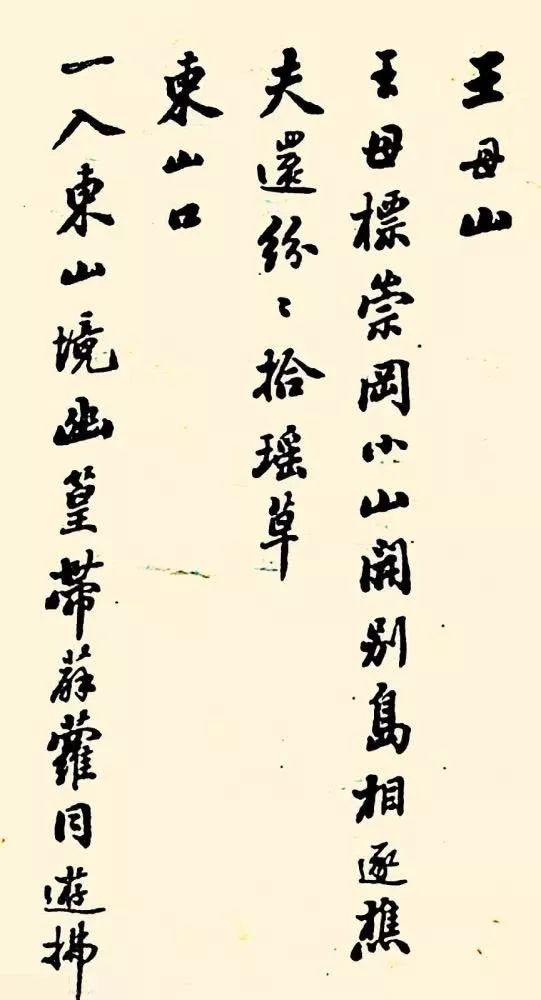 王母山
王母標崇岡小山開別島相逐樵
夫還紛〻拾瑶草
東山口
一入東山境幽篁帶薜蘿同遊拂